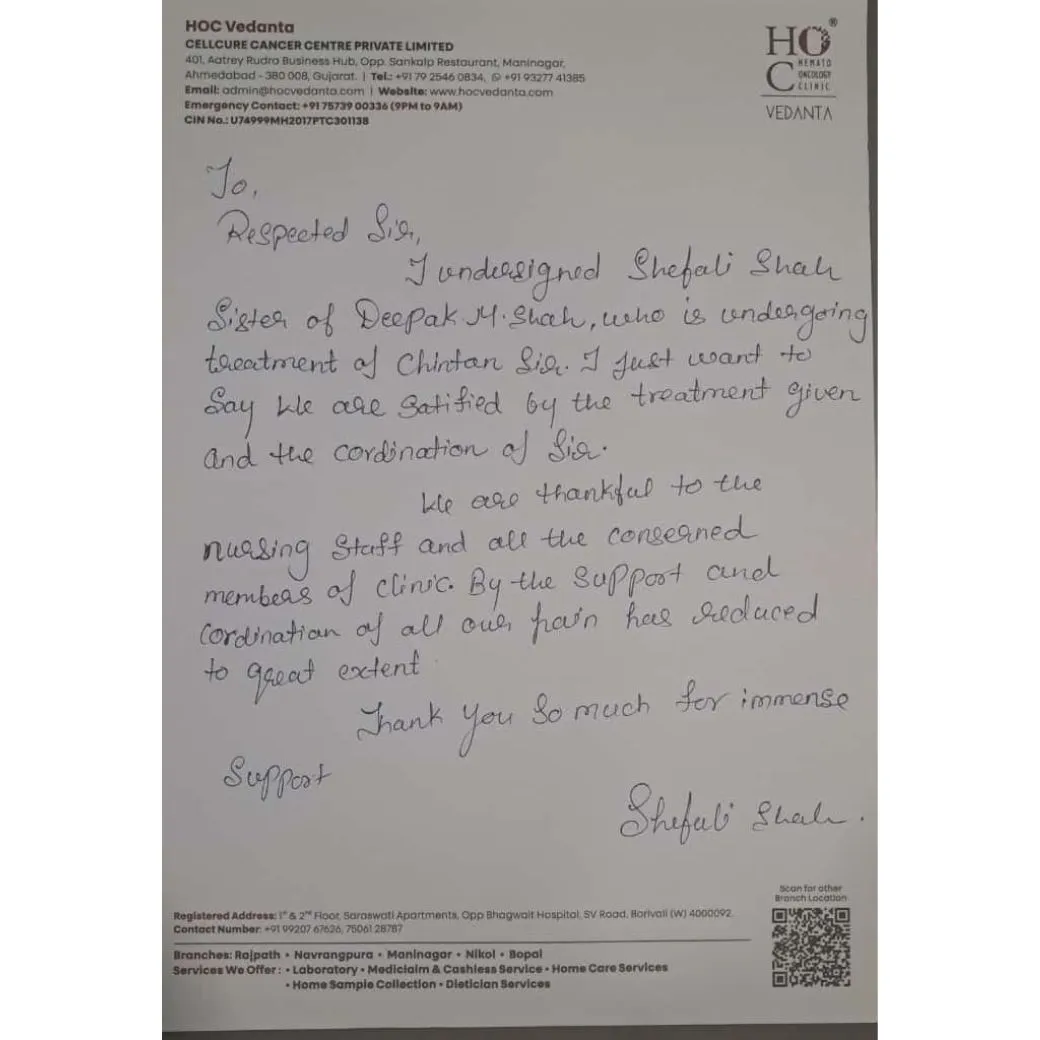 HOC Vedanta
CELLCURE CANCER CENTRE PRIVATE LIMITED
401, Aatrey Rudra Business Hub, Opp. Sankalp Restaurant, Maninagar,
Ahmedabad - 380 008, Gujarat. | Tel.: +91 79 2546 0834, +91 93277 41385
Email: admin@hocvedanta.com | Website: www.hocvedanta.com
Emergency Contact: +91 75739 00336 (9PM to 9AM)
CIN No.: U74999MH2017PTC301138
HOC®
HEMATO
ONCOLOGY
CLINIC
VEDANTA
To,
Respected Sir,
I undersigned Shefali Shah
Sister of Deepak M. Shah, who is undergoing
treatment of Chintan Sir. I Just want to
Say We are Satified by the treatment given
and the cordination of Sir.
We are thankful to the
nursing Staff and all the conserned
members of clinic. By the Support and
Cordination of all our pain has reduced
to great extent
Thank you So much for immense
Support
Shefali Shah.
Scan for other
Branch Location
Registered Address: 1st & 2nd Floor, Saraswati Apartments, Opp Bhagwati Hospital, SV Road, Borivali (W) 4000092.
Contact Number: +91 99207 67626, 75061 28787
Branches: Rajpath • Navrangpura • Maninagar • Nikol • Bopal
Services We Offer: • Laboratory • Mediclaim & Cashless Service • Home Care Services
• Home Sample Collection • Dietician Services